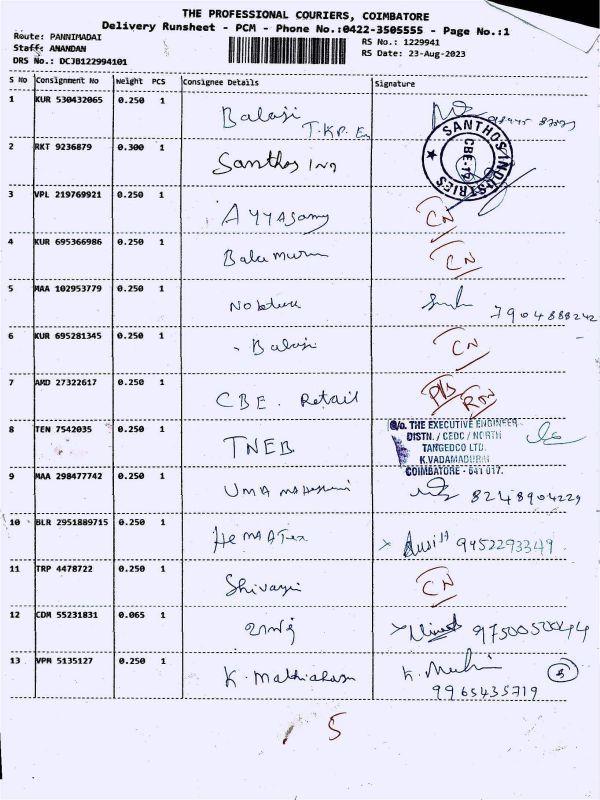 THE PROFESSIONAL COURIERS, COIMBATORE
Delivery Runsheet - PCM - Phone No.:0422-3505555 - Page No.:1
Route: PANNIMADAI
RS No.: 1229941
Staff: ANANDAN
RS Date: 23-Aug-2023
DRS No.: DCJB122994101
S No Consignment No Weight PCS Consignee Details Signature
1 KUR 530432065 0.250 1 Balaji
T.K.P. En
2 RKT 9236879 0.300 1 Santhos Ind
SANTHOS INDUSTRIES
CBE-19
3 VPL 219769921 0.250 1 AYYASamy CN
4 KUR 695366986 0.250 1 Balamuru CN
5 MAA 102953779 0.250 1
7904888242
6 KUR 695281345 0.250 1 Balaji CN
7 AMD 27322617 0.250 1 CBE. Retail
8 TEN 7542035 0.250 1 TNEB
O/o. THE EXECUTIVE ENGINEER
DISTN. / CEDC / NORTH
TANGEDCO LTD.
K.VADAMADURAI
COIMBATORE - 641 017.
9 MAA 298477742 0.250 1 UMA 8248904229
10 BLR 2951889715 0.250 1 HEMA Tex 9952293349
11 TRP 4478722 0.250 1 Shivaji CN
12 CDM 55231831 0.065 1 9750050044
13 VPM 5135127 0.250 1 K. Mathiarasan K.
9965435719
5